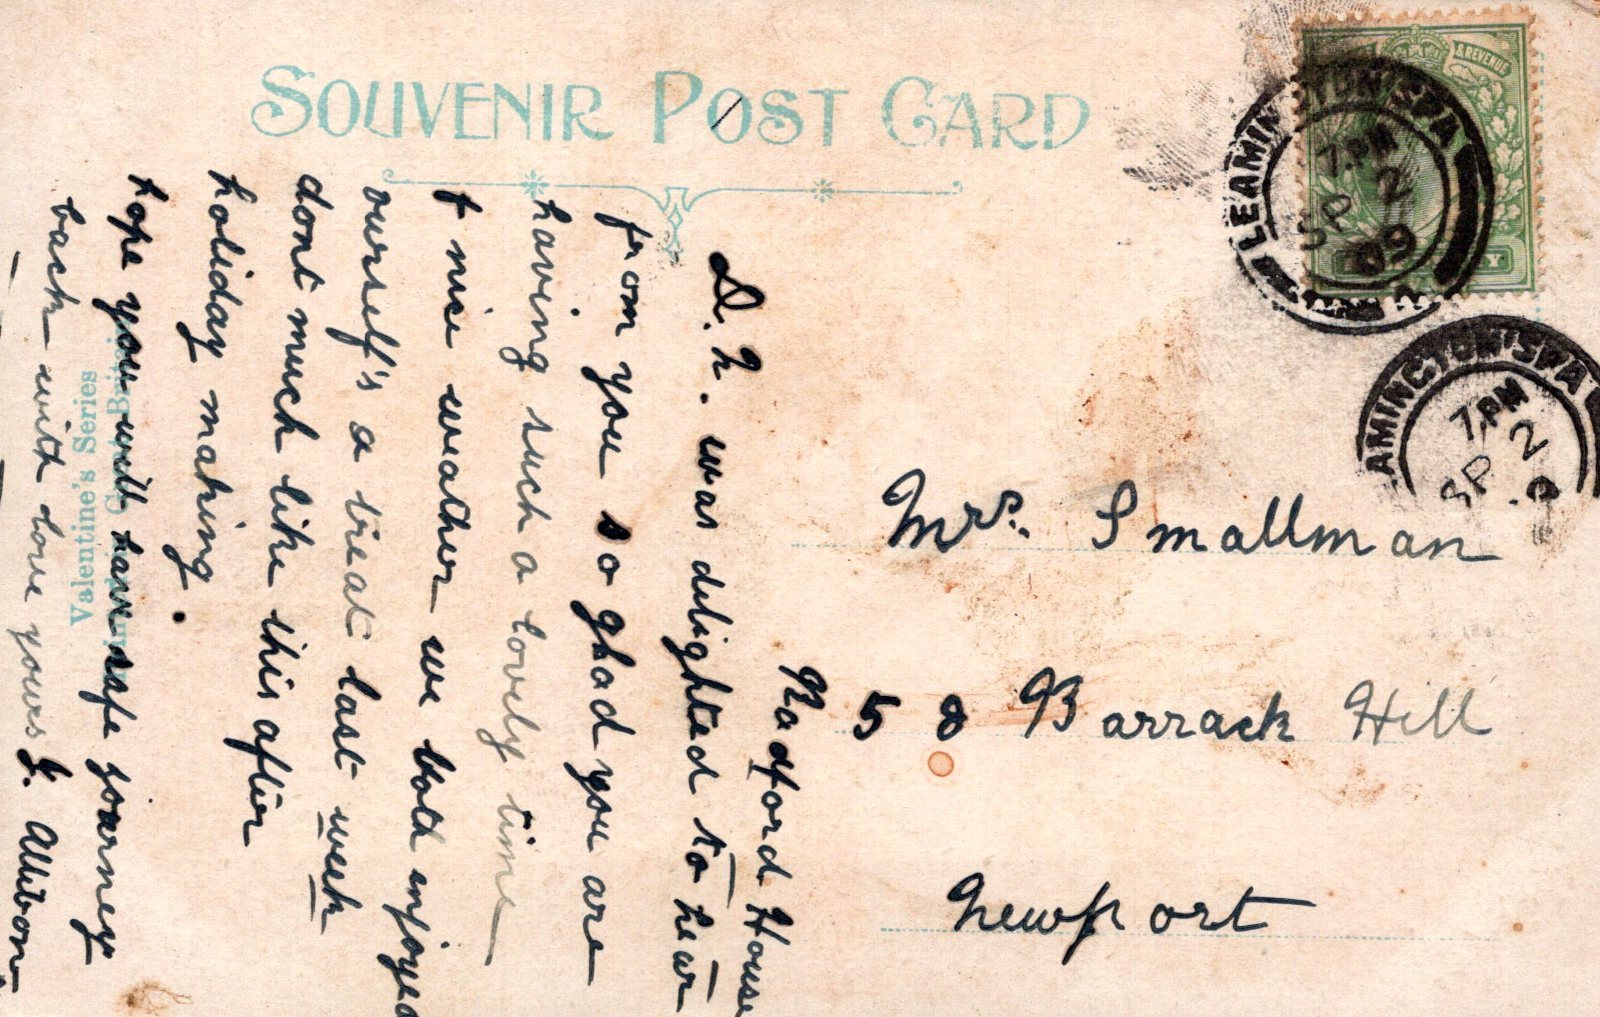 SOUVENIR POST CARD
& REVENUE
LEAMINGTON SPA
7.PM
SP 2
09
LEAMINGTON SPA
7.PM
SP 2
Mrs. Smallman
58 Barrack Hill
Newport
Radford House
D. N. was delighted to hear
from you so ghad you are
having such a lovely time
& nice weather we both injoyed
ourself's a treat last week
dont much like this after
holiday making.
hope you will have safe journey
back with love yours J. Allibon
Valentine's Series